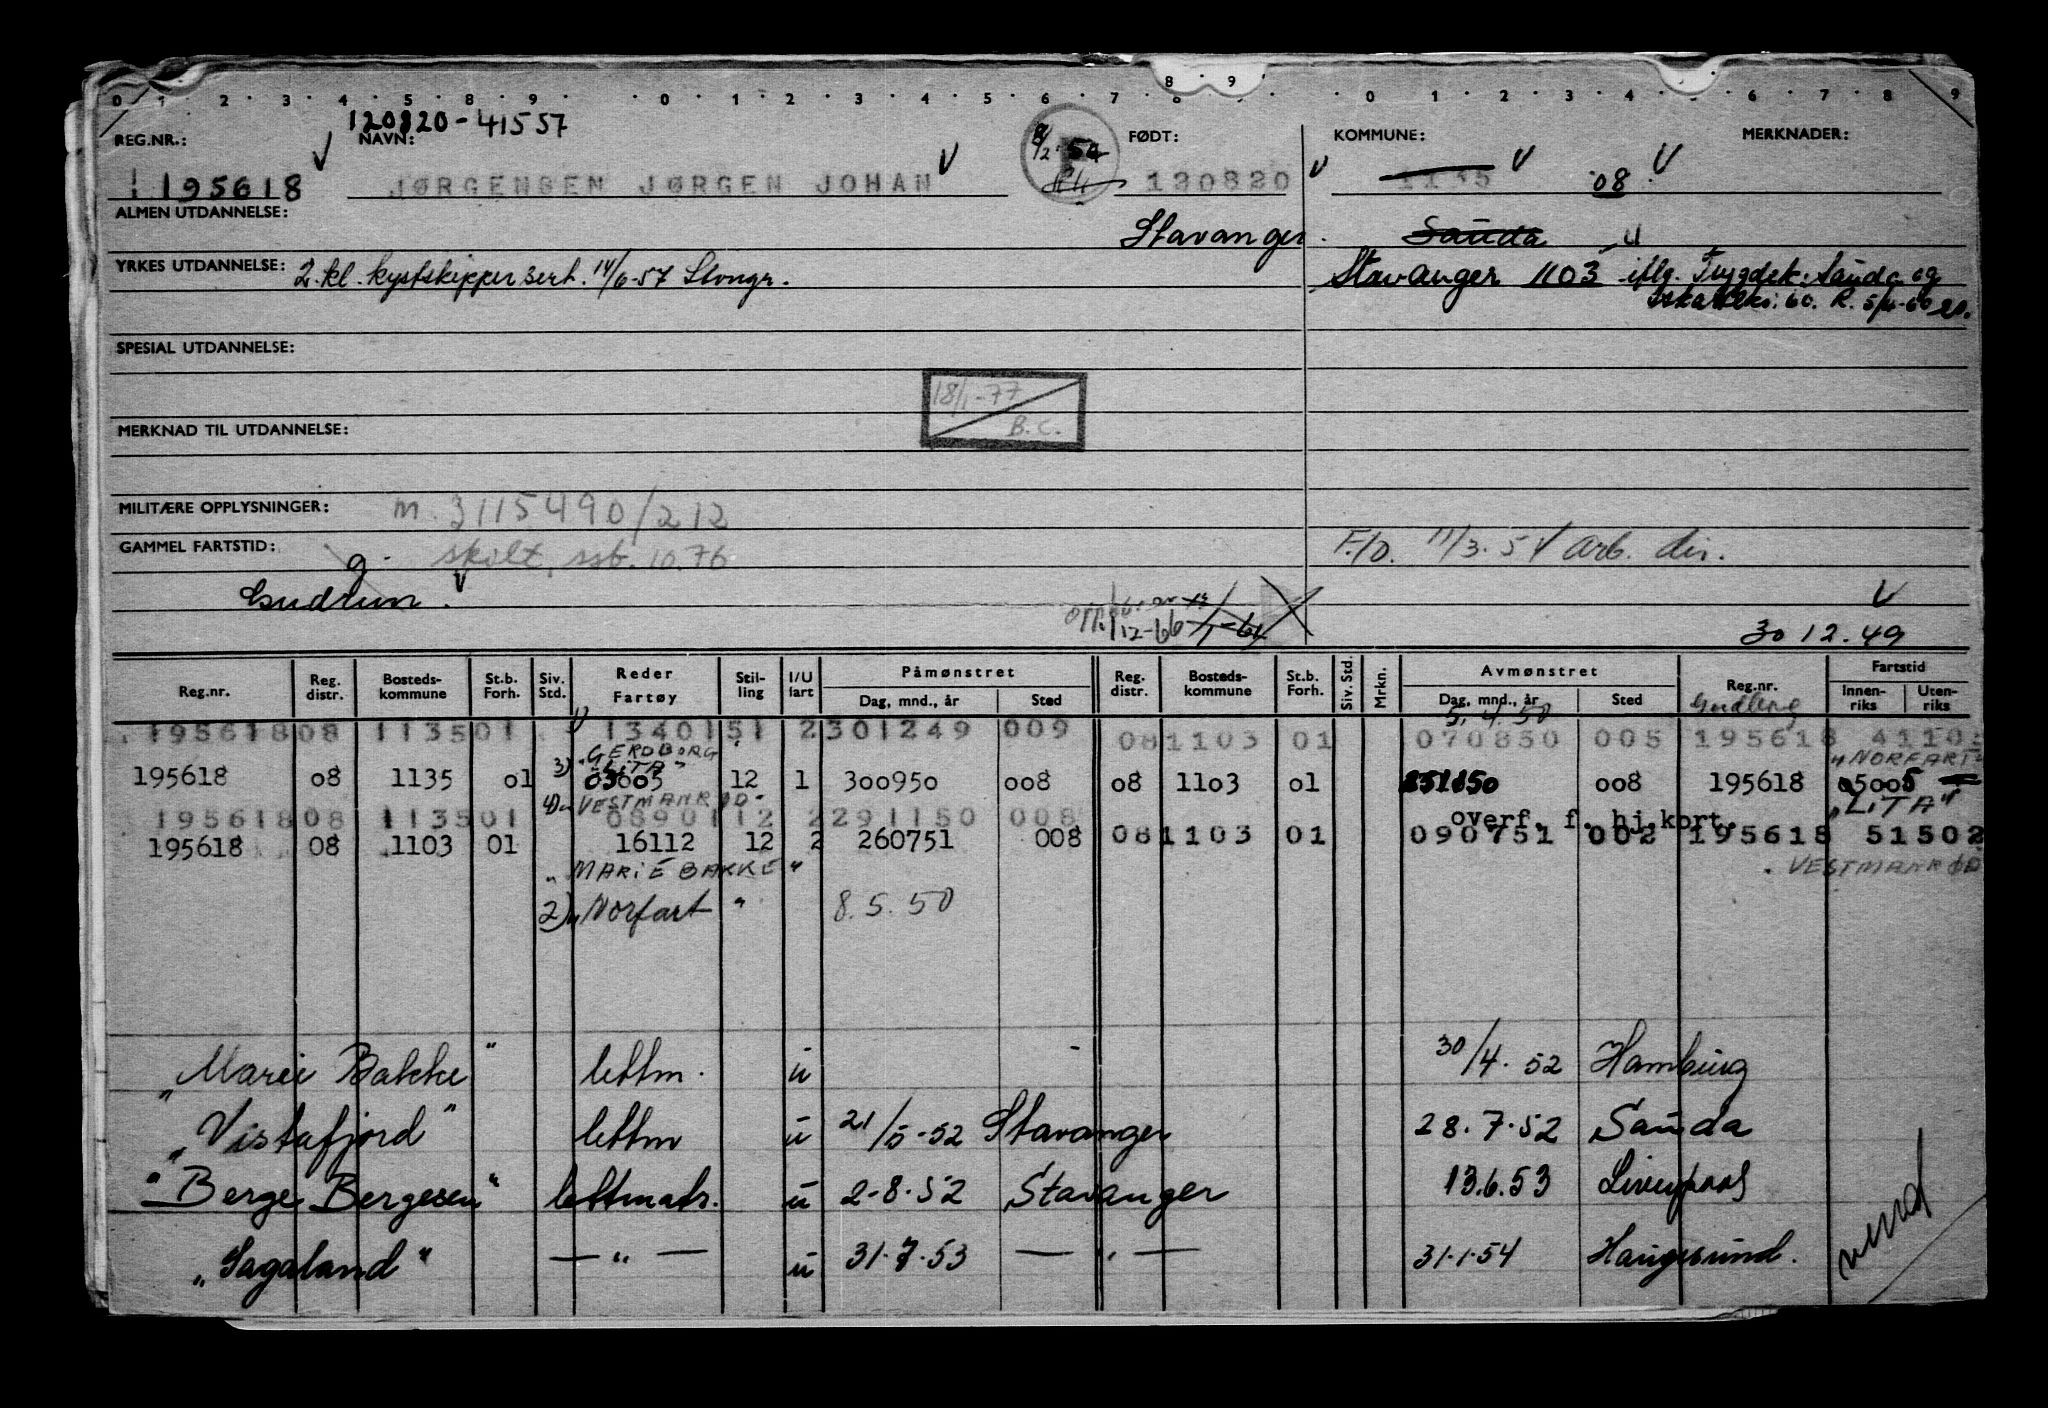 0 1 2 3 4 5 6 8 9 0 1 2 3 4 5 6 7 8 9 0 1 2 3 4 6 7 8 9
120820-41557
REG.NR.: NAVN: FØDT: KOMMUNE: MERKNADER:
195618 JØRGENSEN JØRGEN JOHAN 120820 1135 08
ALMEN UTDANNELSE: Stavanger. Sauda
YRKES UTDANNELSE: 2.kl. kystskipper sert. 14/6-57 Stvngr. Stavanger 1103 iflg. Trygdek. Sauda og
60. R. 5/4-60
SPESIAL UTDANNELSE:
18/1-77
B.C.
MERKNAD TIL UTDANNELSE:
MILITÆRE OPPLYSNINGER: m. 3115490/212
GAMMEL FARTSTID: skilt, ssb. 10.76 F.D. 11/3.54 Arb. dir.
g.
Gudrun.
12-66 1-64 30 12.49
Reg.nr. Reg. distr. Bosteds-kommune St.b. Forh. Siv. Std. Reder Fartøy Stil-ling I/U fart Påmønstret Dag, mnd., år Sted Reg. distr. Bosteds-kommune St.b. Forh. Siv. Std. Mrkn. Avmønstret Dag, mnd., år Sted Reg.nr. Fartstid Innen-riks Uten-riks
5.4.50
195618 08 1135 01 1340151 2 301249 009 08 1103 01 070850 005 195618
3) "GERDBORG "NORFART"
"LITA"
195618 08 1135 01 03005 12 1 300950 008 08 1103 01 008 195618 05005
4) "VESTMANRØD" "LITA"
195618 08 1135 01 0890112 2 291150 008 overf. f. hj.kort.
08 1103 01 090751 002 195618 51502
195618 08 1103 01 16112 12 2 260751 008
"MARIE BAKKE" "VESTMANRØD
2) "Norfart" 8.5.50
"Marie Bakke" lettm. u 30/4.52 Hamburg
"Vistafjord" lettm u 21/5-52 Stavanger 28.7.52 Sauda
"Berge Bergesen" lettmatr. u 2-8.52 Stavanger 13.6.53 Liverpool
"Sagaland" — " — u 31.7.53 — " — 31.1.54 Haugesund.
vend